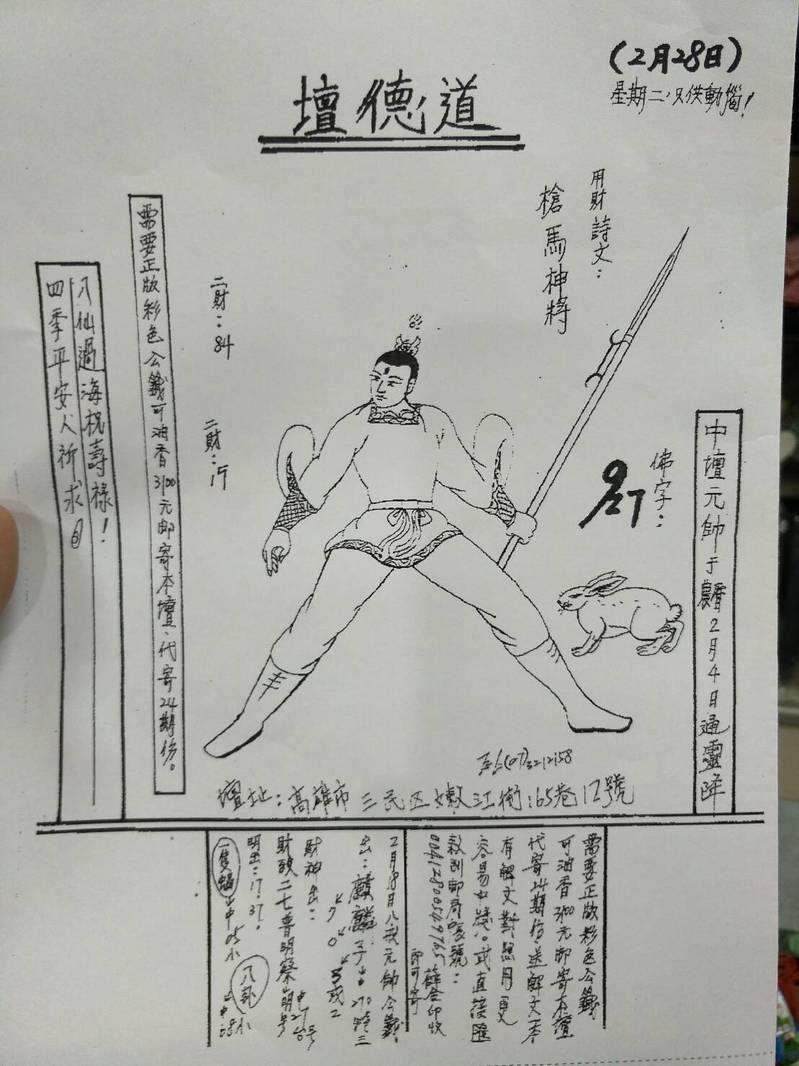 (2月28日)
星期二,只供動腦!
道德壇
用財詩文:
槍馬神將
二財:84
二財:17
佛字:
927
中壇元帥于農曆2月4日通靈降
需要正版彩色公籤可油香3100元郵寄本壇、代寄24期份。
八仙過海祝壽祿!
四季平安人祈求
壇址:高雄市三民區嫩江街:65巷12號
需要正版彩色公籤
可油香3100元郵寄本壇
代寄24期份、送解文本
有解文對照用更
容易
或直接匯
款到郵局帳號:
即可寄
2月18日八我元帥公籤
出:麒麟子
270特三
7 0
財神出:
財政二七普明察
明出:17.37.
一隻蝠 中05小
八卦